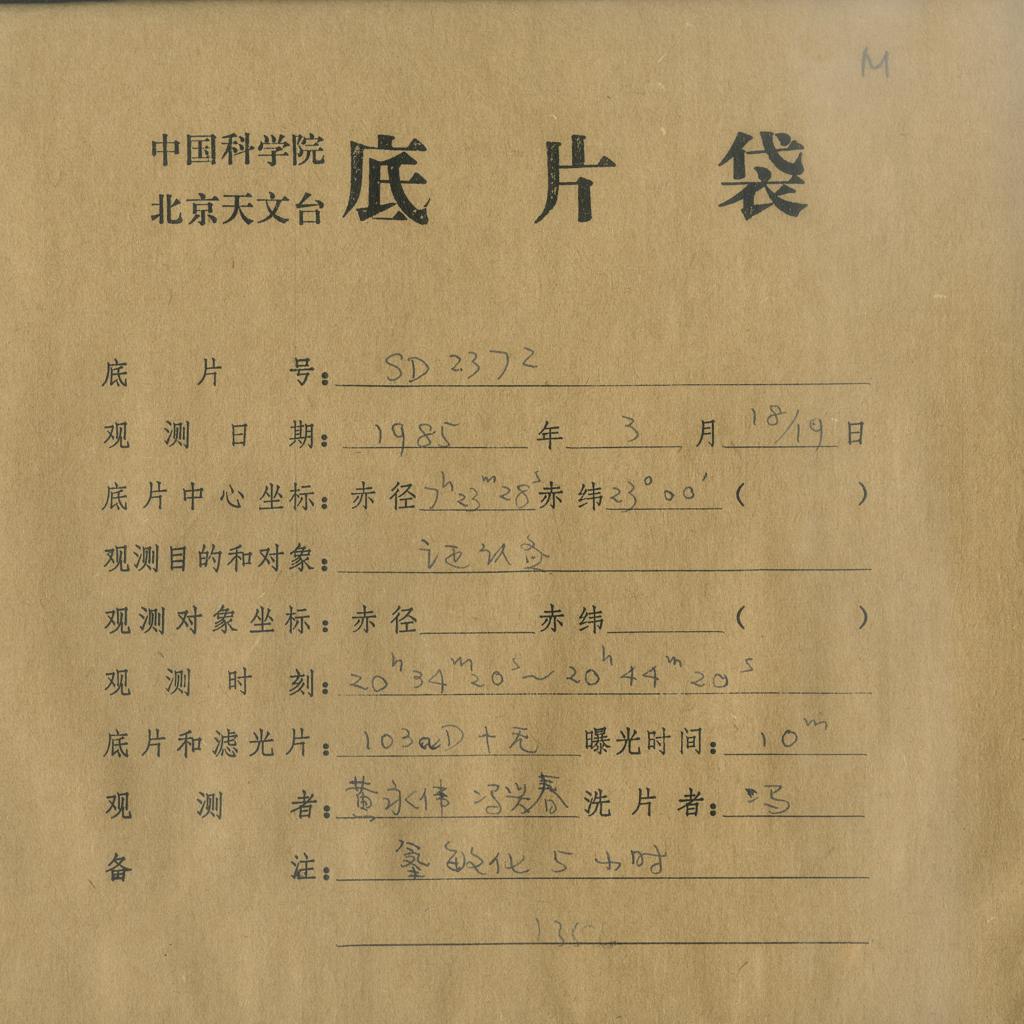 M
中国科学院
北京天文台
底片袋
底片号：SD 2372
观测日期：1985年3月18/19日
底片中心坐标：赤径7ʰ23ᵐ28ˢ赤纬23°00′（ ）
观测目的和对象：证认
观测对象坐标：赤径 赤纬 （ ）
观测时刻：20ʰ34ᵐ20ˢ～20ʰ44ᵐ20ˢ
底片和滤光片：103aD＋无 曝光时间：10ᵐ
观测者：黄永伟 冯兴春 洗片者：冯
备注：敏化5小时